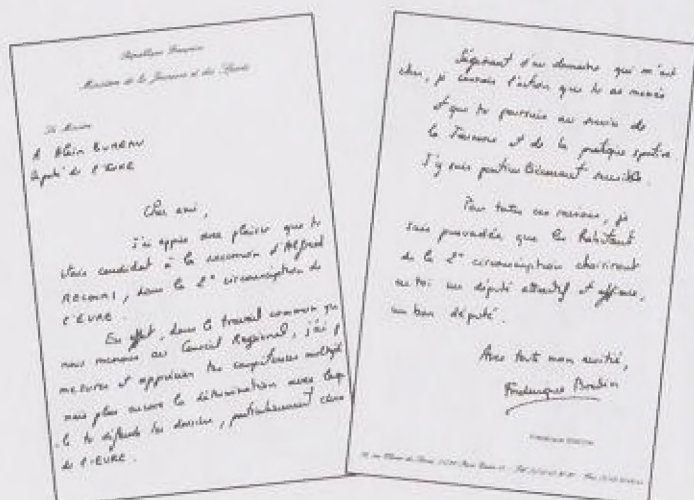 République Française
Ministère de la Jeunesse et des Sports
Le Ministre
A Alain BUREAU
Député de l'EURE
Cher ami,
J'ai appris avec plaisir que tu
étais candidat à la succession d'Alfred
RECOURS, dans la 2e circonscription de
l'EURE.
En effet, dans le travail commun que
nous menons au Conseil Régional, j'ai pu
mesurer et apprécier tes compétences multiples
mais plus encore la détermination avec laquel
le tu défends les dossiers, particulièrement ceux
de l'EURE.
S'agissant d'un domaine qui m'est
cher, je connais l'action que tu as menée
et que tu poursuis au service de
la Jeunesse et de la pratique sportive
J'y suis particulièrement sensible.
Pour toutes ces raisons, je
suis persuadée que les habitants
de la 2e circonscription choisiront
en toi un député attentif et efficace,
un bon député.
Avec toute mon amitié,
Frédérique Bredin